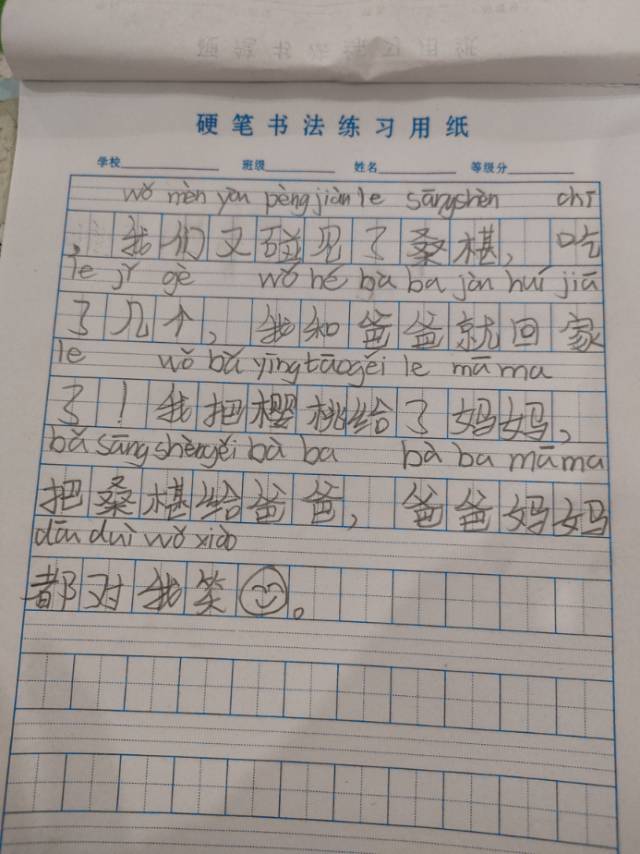 硬笔书法练习用纸
学校 班级 姓名 等级分
wǒ mèn yòu pèng jiàn le sāng shèn chī
，我们又碰见了桑椹，吃
le jǐ gè wǒ hé bà ba jàn huí jiā
了几个，我和爸爸就回家
le wǒ bǎ yīng tāo gěi le mā ma
了！我把樱桃给了妈妈，
bǎ sāng shèn gěi bà ba bà ba mā ma
把桑椹给爸爸，爸爸妈妈
dōu duì wǒ xiào
都对我笑😊。